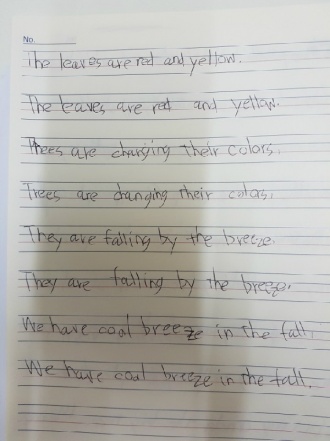 No.
The leaves are red and yellow.
The leaves are red and yellow.
Trees are changing their colors.
Trees are changing their colors.
They are falling by the breeze.
They are falling by the breeze.
We have cool breeze in the fall.
We have cool breeze in the fall.